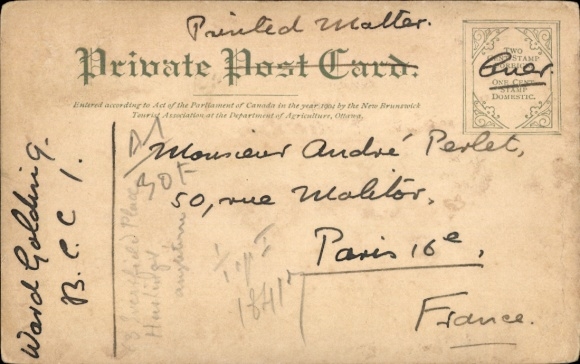 Printed Matter.
Private Post Card.
Entered according to Act of the Parliament of Canada in the year 1904 by the New Brunswick
Tourist Association at the Department of Agriculture, Ottawa.
TWO
CENT STAMP
FOREIGN
Over.
ONE CENT
STAMP
DOMESTIC.
Monsieur André Perlet,
50, rue Molitor,
Paris 16e,
France.
Ward Golding.
B.C.C 1.
Place
Hastings